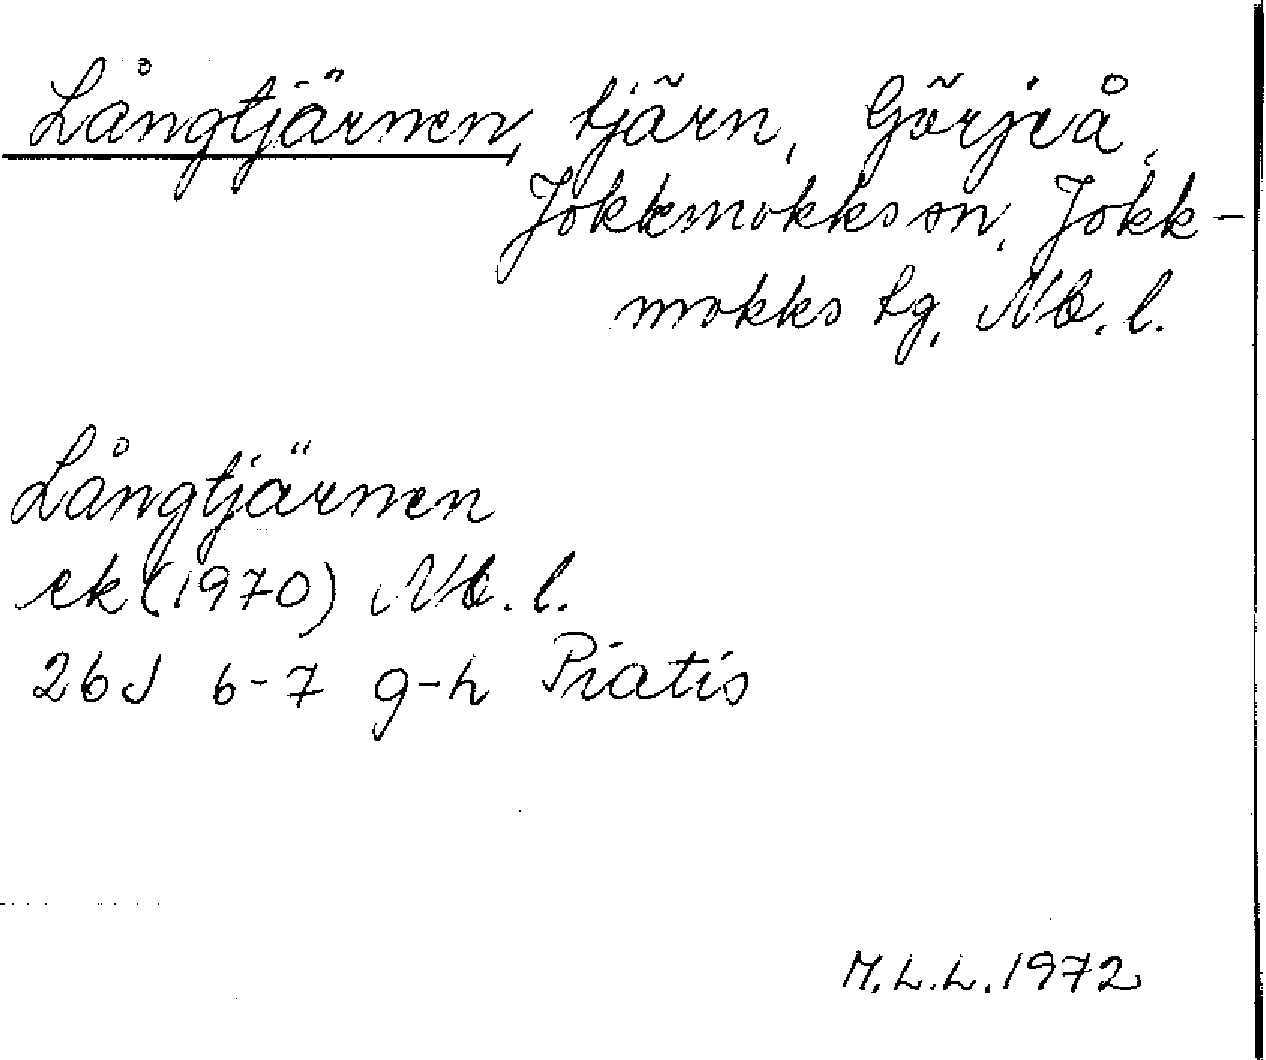 Långtjärnen, tjärn, Görjeå,
Jokkmokks sn, Jokk-
mokks tg, Nb. l.
Långtjärnen
ek (1970) Nb. l.
26J 6-7 g-h Piatis
M.L.L. 1972